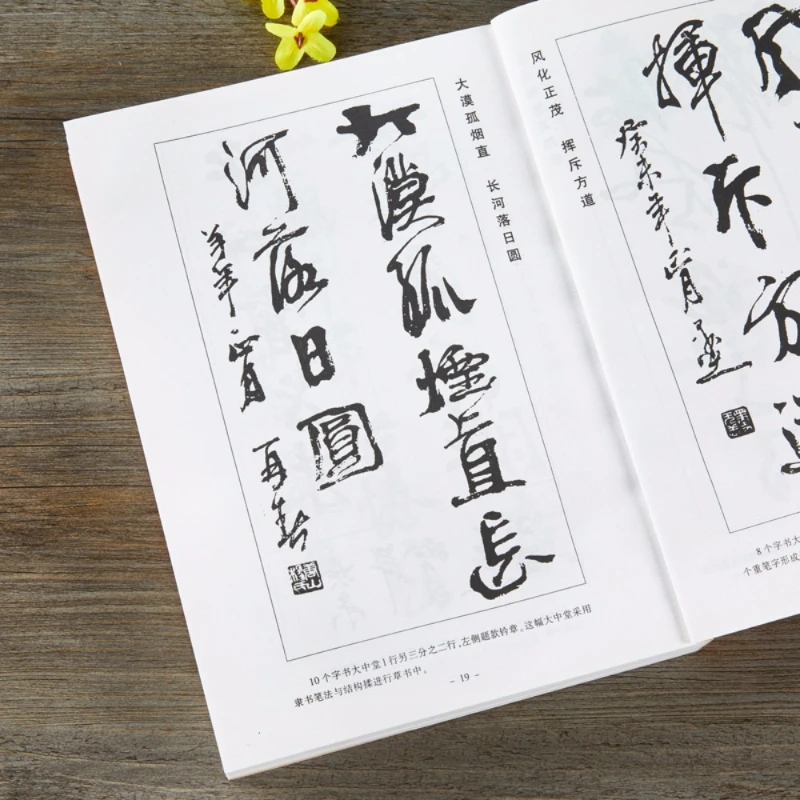 大漠孤烟直 长河落日圆
大漠孤煙直長
河落日圓
羊年正月 再春
10个字书大中堂1行另三分之二行,左侧题款钤章。这幅大中堂采用
隶书笔法与结构揉进行草书中。
- 19 -
风化正茂 挥斥方道
揮斥方
癸未年正月
8个字书大
个重笔字形成